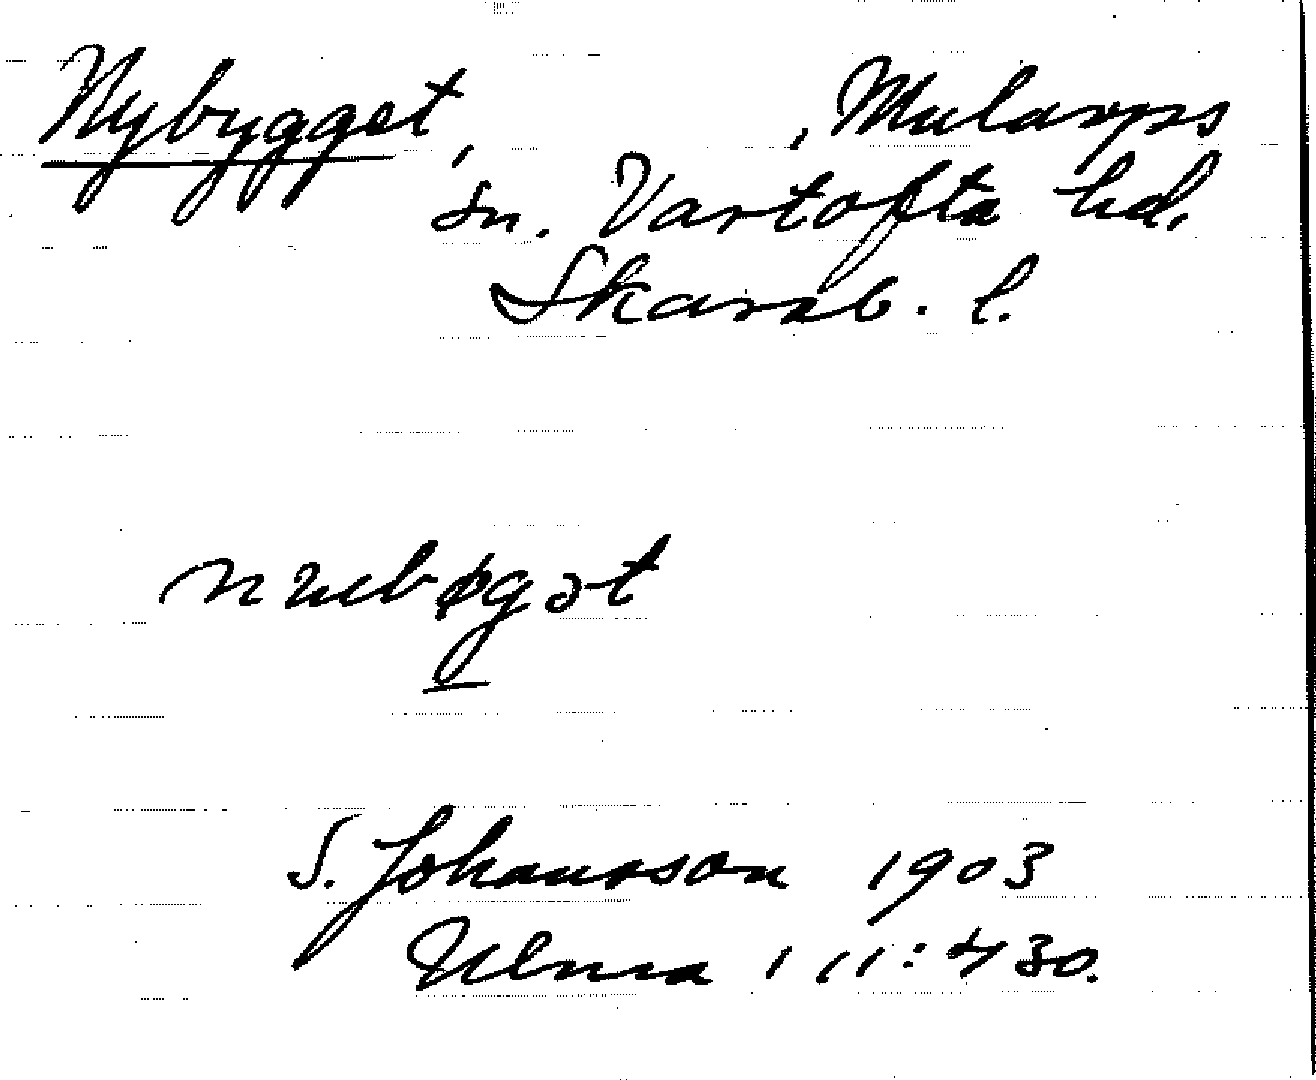 Nybygget, , Mularps
sn. Vartofta hd.
Skarab. l.
S. Johansson 1903
Ulma 111:430.